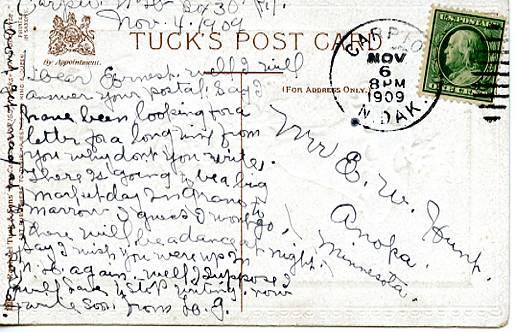 Carpio N. D.
Nov. 4. 1909
TUCK'S POST CARD
By Appointment.
(FOR ADDRESS ONLY.)
CARPIO
NOV
6
8 PM
1909
N. DAK.
U.S. POSTAGE
ONE CENT
Dear Earnest. well I will
answer your postal. Say I
have been looking for a
letter for a long time from
you why dont you write.
There is going to be a big
market day in Grano to
marrow I guess I wont go.
there will be a dance at night.
say I wish you were up in
N. D. again. well I suppose I
will have to stop writing now
write soon from
Mr E. W. Hunt.
Anoka.
Minnesota.